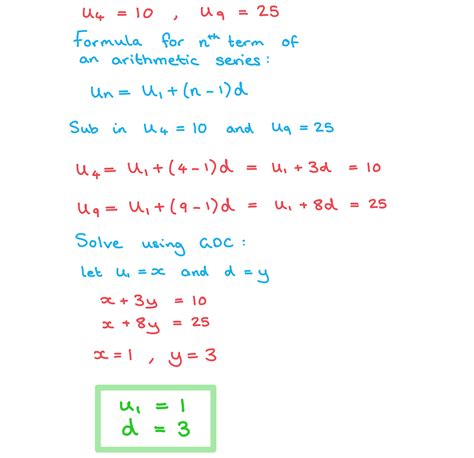 u₄ = 10 , u₉ = 25
Formula for nᵗʰ term of
an arithmetic series :
uₙ = u₁ + (n - 1)d
Sub in u₄ = 10 and u₉ = 25
u₄ = u₁ + (4 - 1)d = u₁ + 3d = 10
u₉ = u₁ + (9 - 1)d = u₁ + 8d = 25
Solve using GDC :
let u₁ = x and d = y
x + 3y = 10
x + 8y = 25
x = 1 , y = 3
u₁ = 1
d = 3